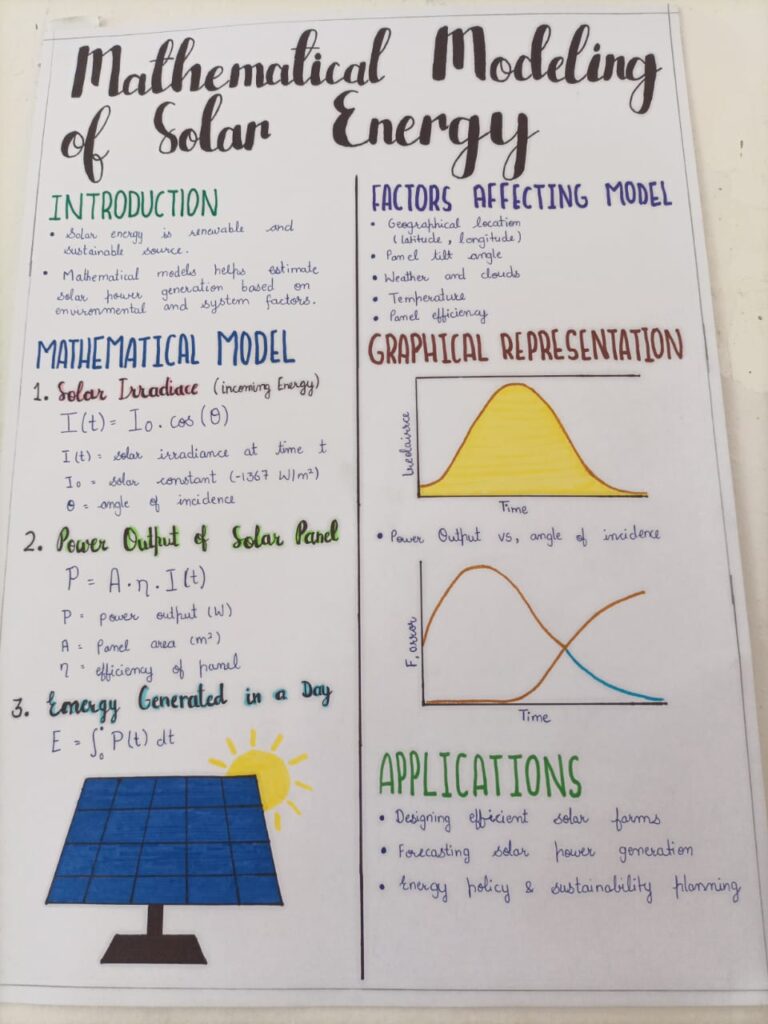 Mathematical Modeling
of Solar Energy
INTRODUCTION
• Solar energy is renewable and
sustainable source.
• Mathematical models helps estimate
solar power generation based on
environmental and system factors.
MATHEMATICAL MODEL
1. Solar Irradiace (incoming Energy)
I(t) = I₀ . cos (θ)
I(t) = solar irradiance at time t
I₀ = solar constant (~1367 W/m²)
θ = angle of incidence
2. Power Output of Solar Panel
P = A . η . I(t)
P = power output (W)
A = Panel area (m²)
η = efficiency of panel
3. Energy Generated in a Day
E = ∫₀ P(t) dt
FACTORS AFFECTING MODEL
• Geographical location
(latitude, longitude)
• Panel tilt angle
• Weather and clouds
• Temperature
• Panel efficiency
GRAPHICAL REPRESENTATION
Time
• Power Output vs, angle of incidence
F, error
Time
APPLICATIONS
• Designing efficient solar farms
• Forecasting solar power generation
• Energy policy & sustainability planning